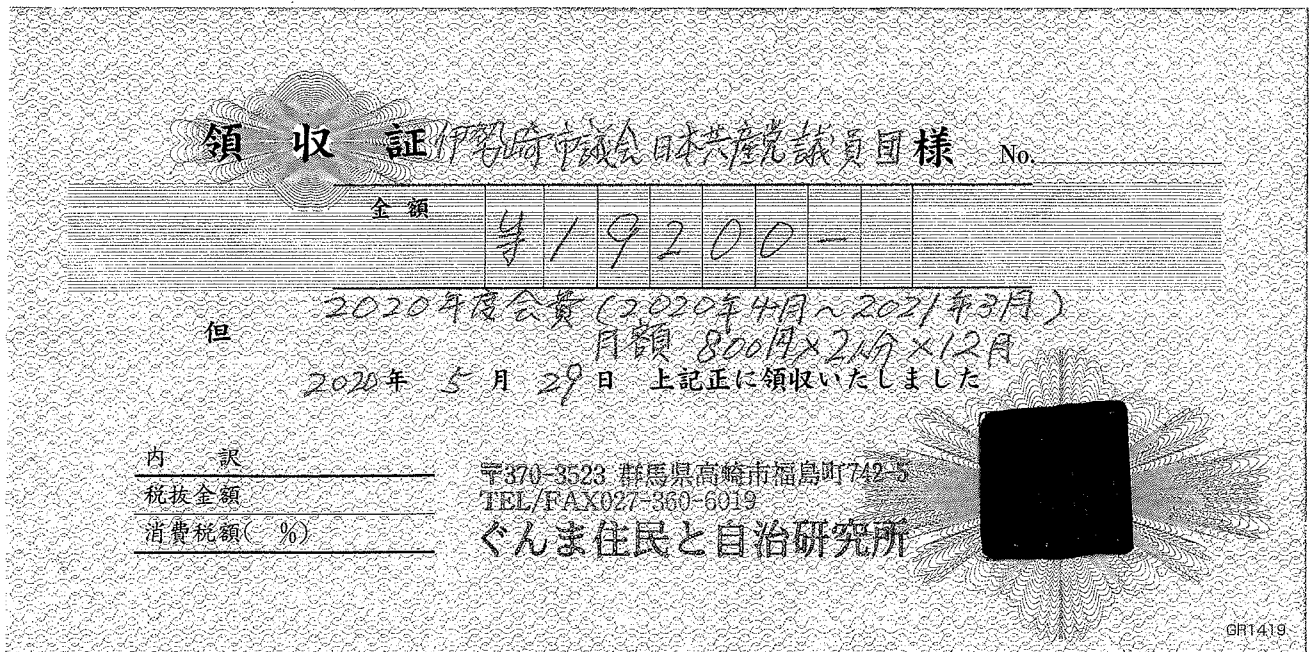 領収証 伊勢崎市議会日本共産党議員団 様 No.
金額 ¥19200-
但 2020年度会費(2020年4月~2021年3月)
月額 800円×2人分×12月
2020年 5月 29日 上記正に領収いたしました
内訳
税抜金額
消費税額( %)
〒370-3523 群馬県高崎市福島町742-5
TEL/FAX027-360-6019
ぐんま住民と自治研究所
GR1419